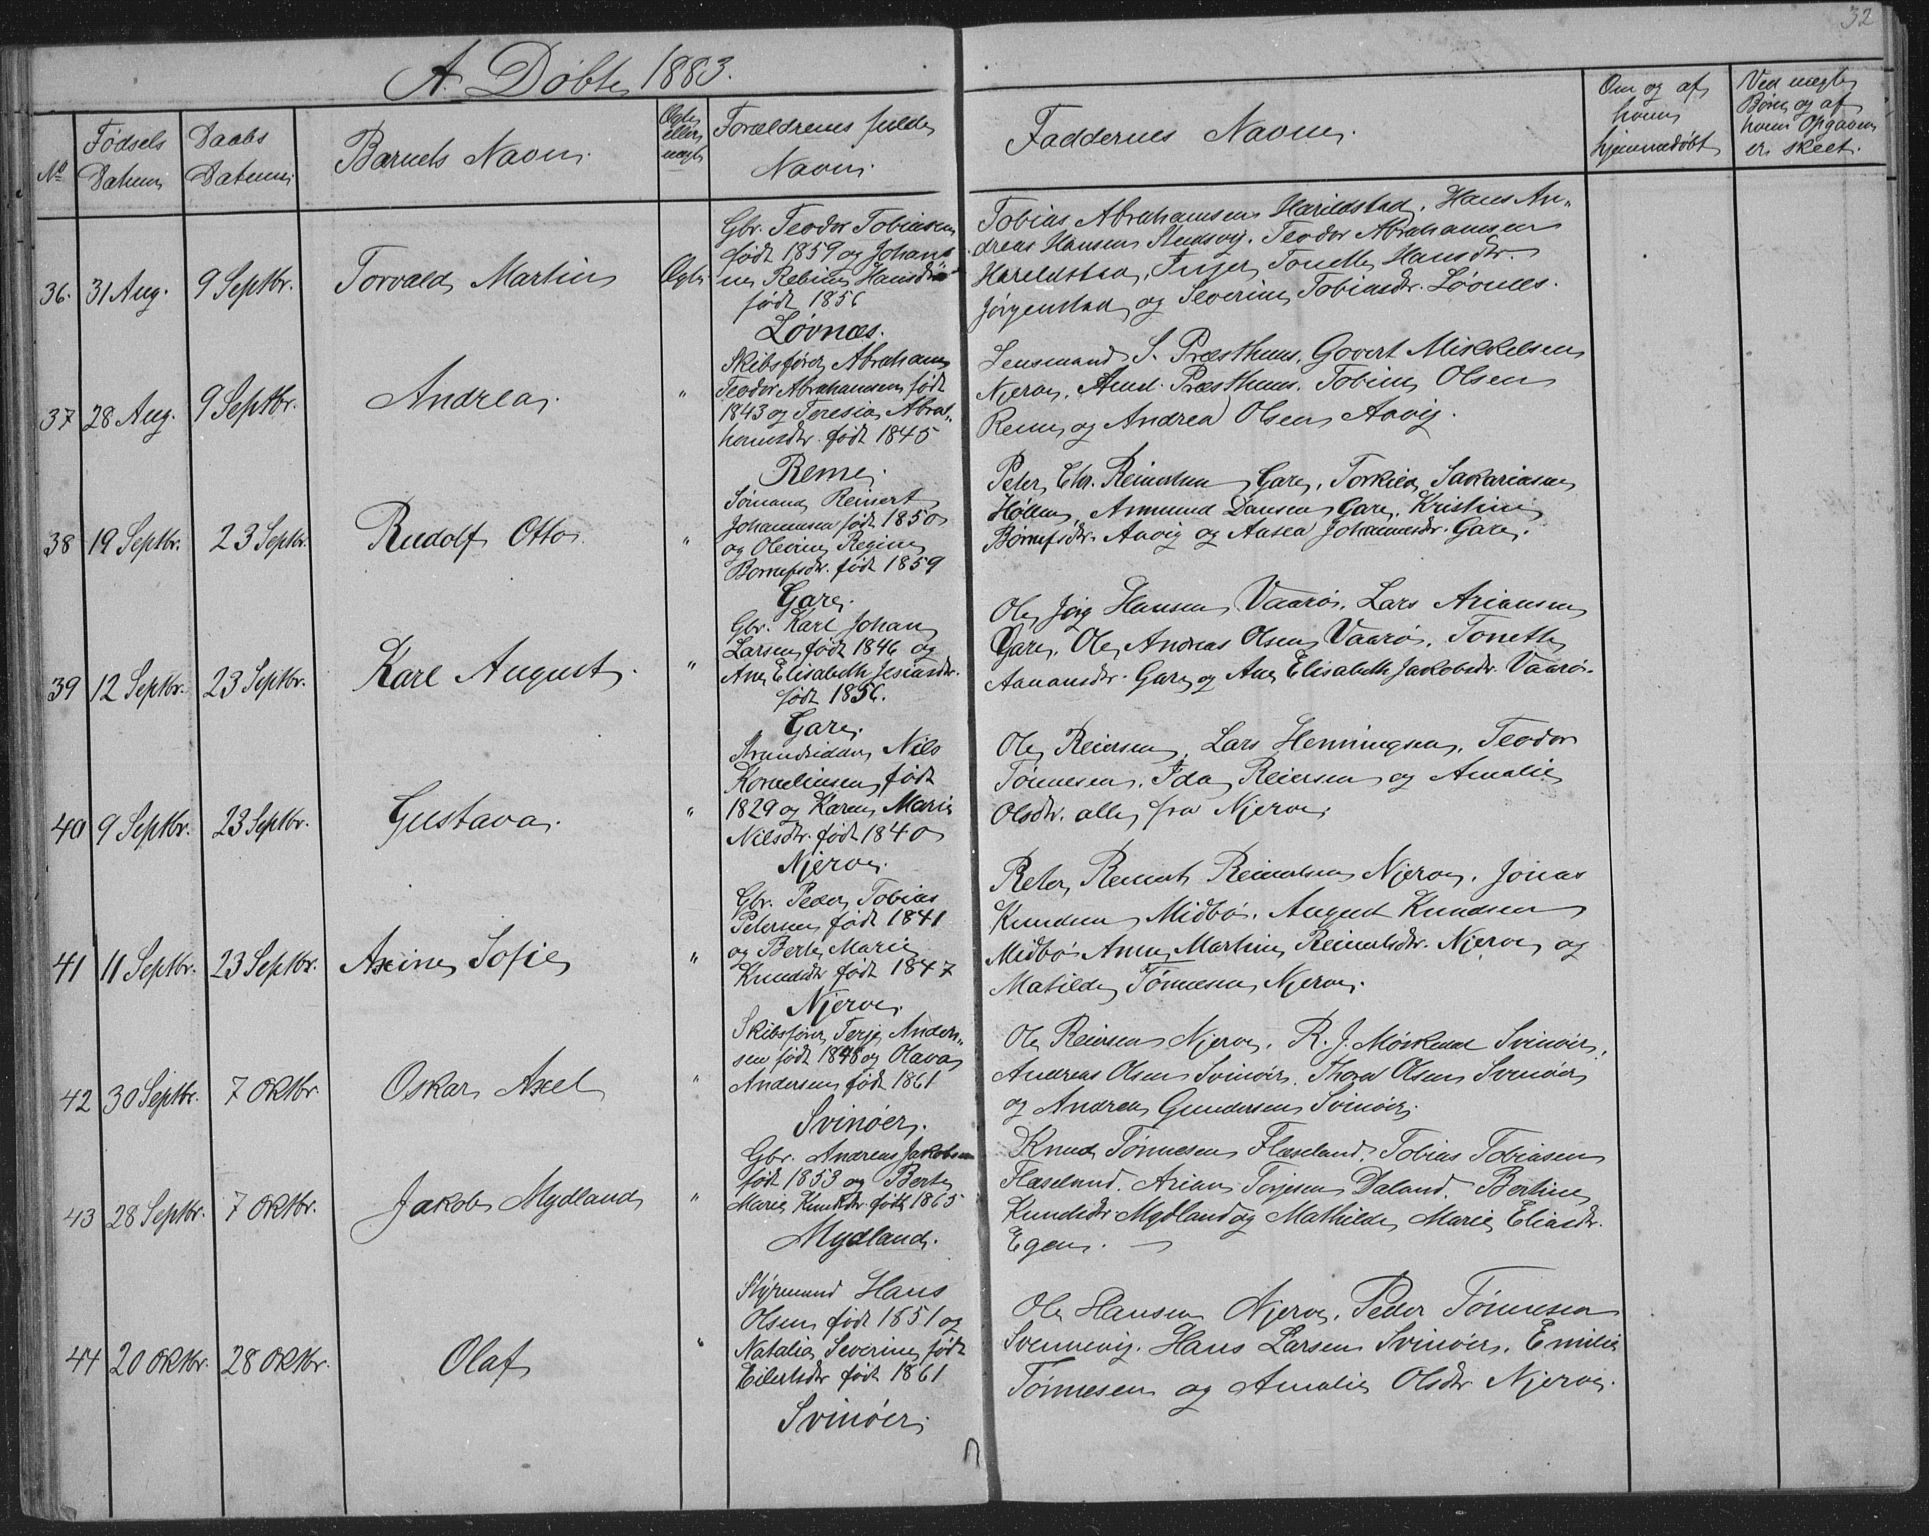 32
A. Døbte 1883.
No
Fødsels Datum
Daabs Datum
Barnets Navn.
Ægte eller uægte
Forældrenes fulde Navn.
Faddernes Navne.
Om og af hvem hjemmedøbt
Ved uægte Børn, og af hvem Opgaven er skeet.
36. 31 Aug. 9 Septbr. Torvald Martin Ægte
Gbr. Teodor Tobiasen
født 1859 og Johan-
ne Rebina Hansdtr
født 1856
Løvnæs.
Tobias Abrahamsen Harildstad, Hans An-
dreas Hansen Stusvig, Teodor Abrahamsen
Hareldstad, Inger Tonette Hansdtr.
Jørgenstad og Severine Tobiasdr. Løvnes.
37 28 Aug. 9 Septbr. Andrea. "
Skibsfører Abraham
Teodor Abrahamsen født
1843 og Teresia Abra-
hamsdtr. født 1845
Reme.
Lensmand S. Præsthuus, Govert Mikkelsen
Njerve, Præsthuus, Tobine Olsen
Reme og Andrea Olsen Aavig.
38 19 Septbr. 23 Septbr. Rudolf Otto "
Sømand Reinert
Johannesen født 1850
og Olevine Regine
født 1859
Gare.
Peter Chr. Gare, Torkild Sakariasen
Hølle, Anmund Dansen Gare, Kristine
Aavig og Aasea Johannesdr. Gare.
39 12 Septbr. 23 Septbr. Karl August. "
Gbr. Karl Johan
Larsen født 1846 og
Ane Elisabeth Jesiasdr.
født 1856.
Gare.
Ole Jørg Hansen Vaarø, Lars Ariansen
Gare, Ole Andreas Olsen Vaarø, Tonette
Gare og Ane Elisabeth Jakobsdr. Vaarø.
40 9 Septbr. 23 Septbr. Gustava. "
Strandsidder Nils
Korneliusen født
1829 og Karen Marie
Nilsdtr. født 1840
Njerve.
Ole Reiersen, Lars Henningsen, Teodor
Tønnesen, Ida Reiersen og Amalie
Olsdtr. alle fra Njerve.
41 11 Septbr. 23 Septbr. Axine Sofie "
Gbr. Peder Tobias
Petersen født 1841
og Berte Marie
Knudsdtr født 1847
Njerve.
Peter Reinert Reinertsen Njerve, Jonas
Knudsen Midbø, August Knudsen
Midbø Anne Martine Reinertsdtr. Njerve og
Matilde Tønnesen Njerve.
42 30 Septbr. 7 Oktbr. Oskar Axel "
Skibsfører Terje Ander-
sen født 1848 og Olava
Andersen født 1861
Svinøer.
Ole Reiersen Njerve, R. J. Svinøer,
Andreas Olsen Svinøer, Thora Olsen Svinøer
og Andrea Gundersen Svinøer.
43 28 Septbr. 7 Oktbr. Jakob Mydland "
Gbr. Andreas Jakobsen
født 1853 og Berte
Marie Knutsdtr født 1865
Mydland.
Knud Tønnesen Flæseland, Tobias Tobiasen
Flæseland, Arian Torjesen Daland, Bertine
Knudsdtr Mydland og Mathilde Marie Eliasdtr.
Egen.
44 20 Oktbr. 28 Oktbr. Olaf "
Styrmand Hans
Olsen født 1851 og
Natalia Severine født
Eilertsdtr født 1861
Svinøer.
Ole Hansen Njerve, Peder Tønnesen
Svennevig, Hans Larsen Svinøer, Emilie
Tønnesen og Amalie Olsdtr Njerve.